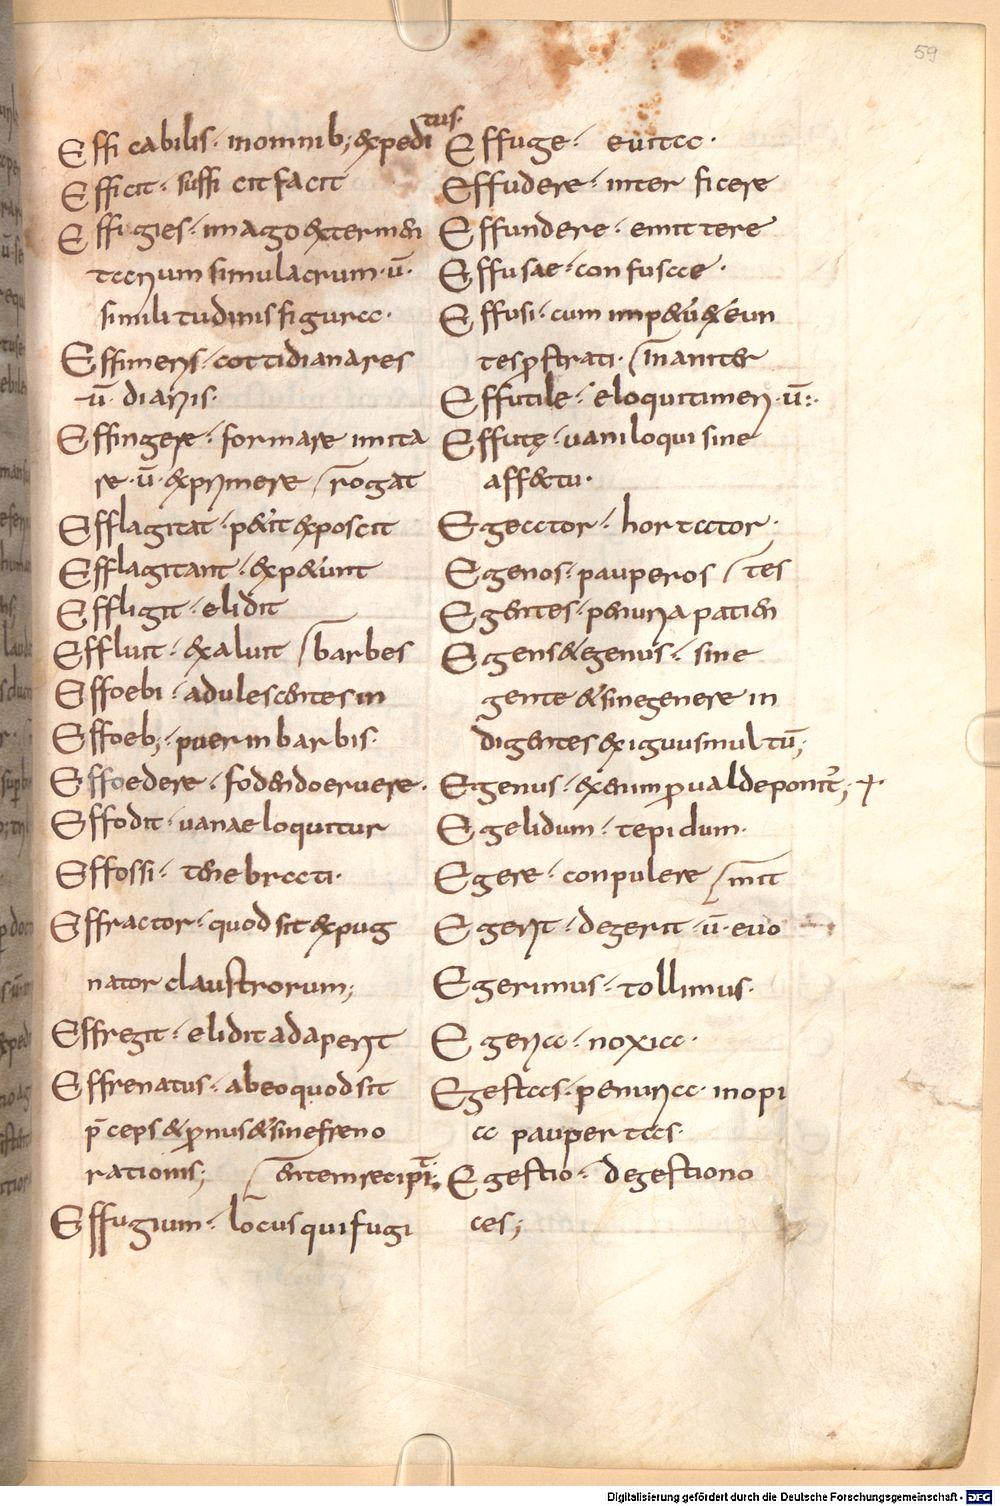 59
Efficabilis· inomnib; expeditus·
Efficit· sufficit facit
Effigies· imago &
simulacrum· ū·
similitudinis figura·
Effimeris· cottidiana res
ū· diaris·
Effingere· formare imita
re· ū· exprimere rogat
Efflagitat· petit exposcit
Efflagitant· expetunt
Effligit· elidit
Effluit· exaluit barbes
Effoebi· adulescentes in
Effoeb; puer inbarbis·
Effoedere· fodendo eruere·
Effodit· uanae loquitur
Effossi· tenebrati·
Effractor· quod sit expug
nator claustrorum;
Effregit· elidit adaperit
Effrenatus· ab eo quod sit
p̄ceps & pronus & sine freno
rationis; entem recipit;
Effugium· locus qui fugi
Effuge· euita·
Effudere· interficere
Effundere· emittere
Effusae· confusae·
Effusi· cum impetu & eun
tes prostrati· inaniter
Effutile· eloquitimen· ū·
Effutę· uaniloqui sine
affectu·
Egeator· hortator·
Egenos· pauperos tes
Egentes· penuria patien
Egens & egenus· sine
gente & sine genere in
digentes exiguus multū;
Egenus·
Egelidum· tepidum·
Egere· conpulere mit
Egerit· degerit· ū· euo
Egerimus· tollimus·
Egeria· noxia·
Egestas· penuria· inopi
a paupertas·
Egestio· degestiono
ces;
Digitalisierung gefördert durch die Deutsche Forschungsgemeinschaft - DFG